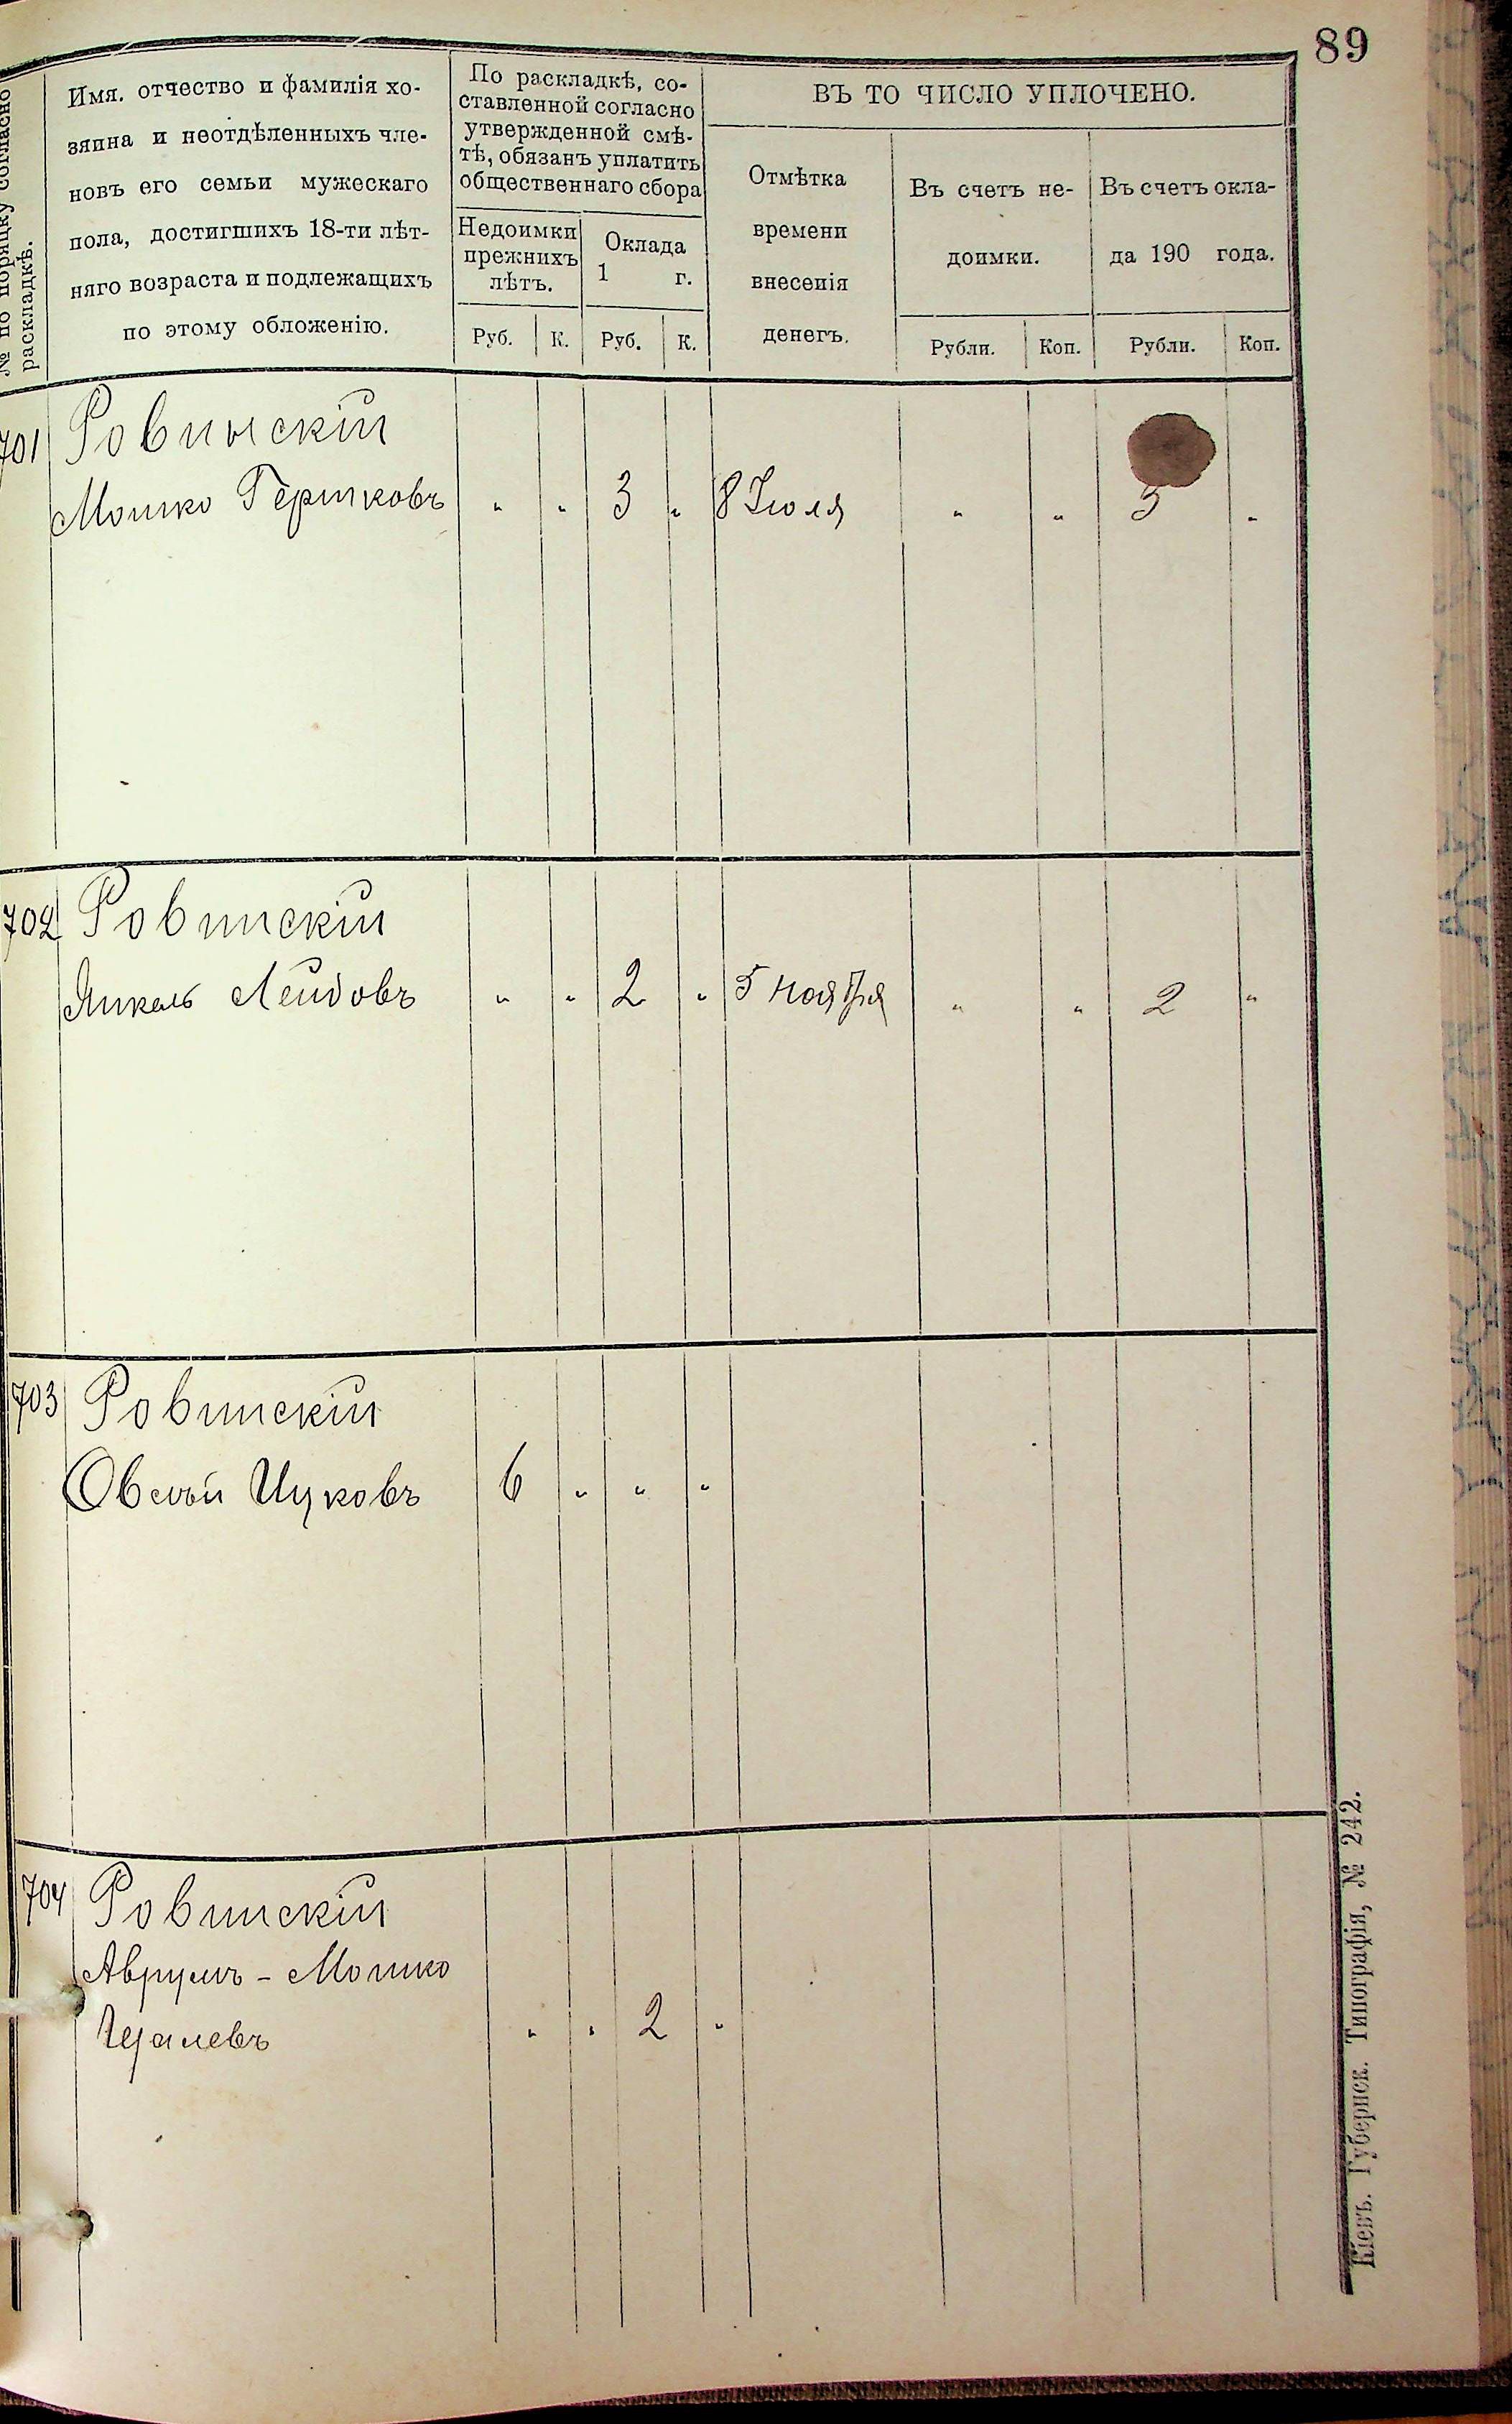 89
№ по порядку согласно
раскладкѣ.
Имя, отчество и фамилія хо-
зяина и неотдѣленныхъ чле-
новъ его семьи мужескаго
пола, достигшихъ 18-ти лѣт-
няго возраста и подлежащихъ
по этому обложенію.
По раскладкѣ, со-
ставленной согласно
утвержденной смѣ-
тѣ, обязанъ уплатить
общественнаго сбора
Недоимки
прежнихъ
лѣтъ.
Оклада
1 г.
Руб. К. Руб. К.
ВЪ ТО ЧИСЛО УПЛОЧЕНО.
Отмѣтка
времени
внесенія
денегъ.
Въ счетъ не-
доимки.
Въ счетъ окла-
да 190 года.
Рубли. Коп. Рубли. Коп.
701 Ровинскій
Мошко Гершковъ " " 3 " 8 Іюля " " 3 "
702 Ровинскій
Янкель Лейбовъ " " 2 " 5 ноября " " 2 "
703 Ровинскій
Овсѣй Ицковъ 6 " " "
704 Ровинскій
Аврумъ - Мошко
" " 2 "
Кіевъ. Губернск. Типографія, № 242.